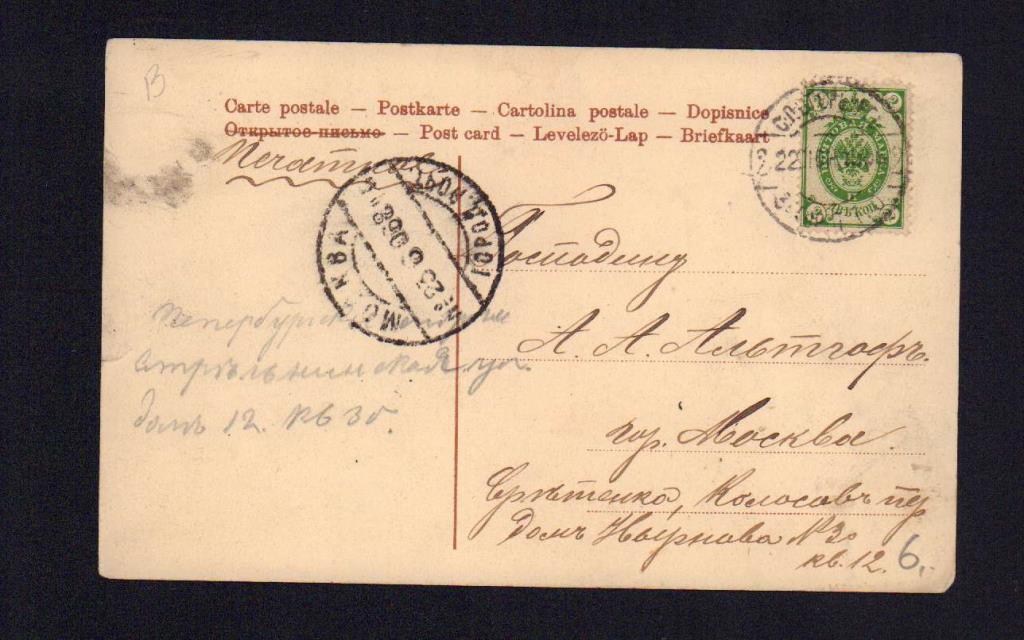 В
Carte postale — Postkarte — Cartolina postale — Dopisnice
Открытое письмо — Post card — Levelező-Lap — Briefkaart
Печатное
МОСКВА
23 6 08
Господину
А. А. Альтгофъ.
гор. Москва.
Срѣтенка, Колосовъ пер
Домъ №3
кв. 12.
6.
Петербургская
Стрѣльнинская ул.
домъ 12. кв 36.